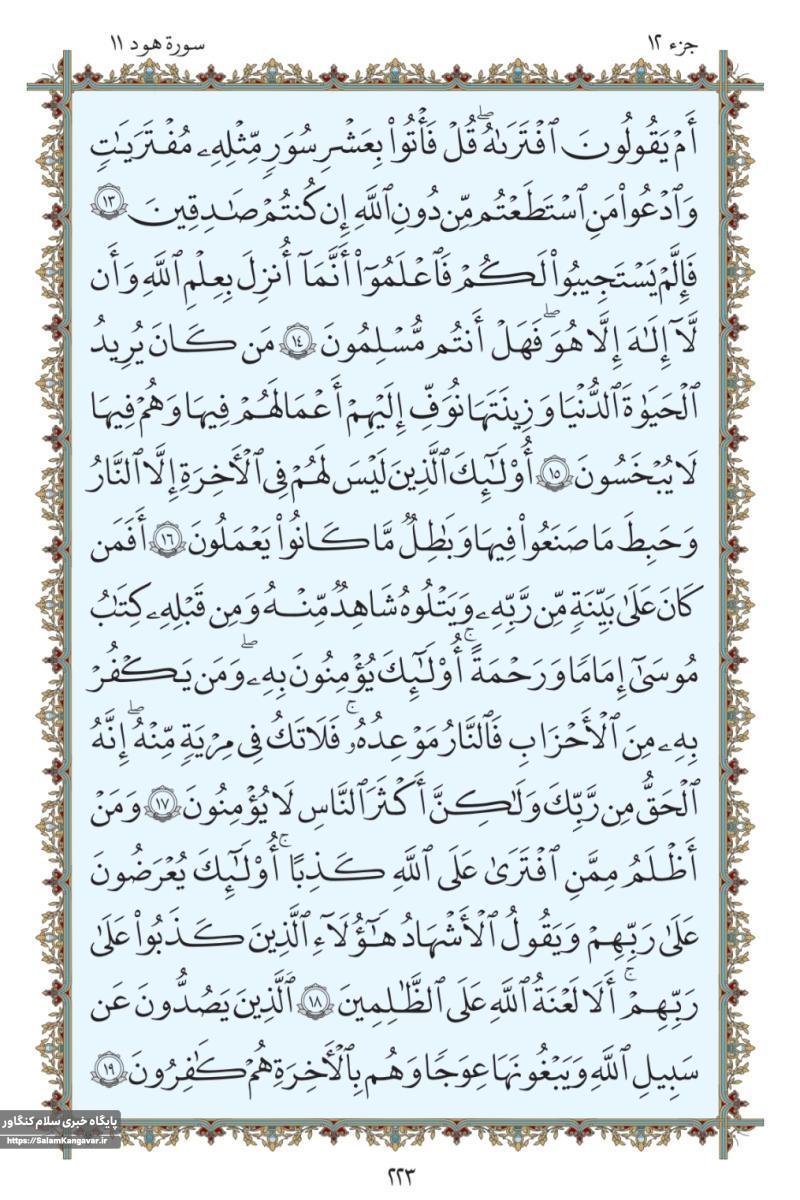 جزء ۱۲
سورة هود ۱۱
أَمْ يَقُولُونَ ٱفْتَرَىٰهُ ۖ قُلْ فَأْتُوا۟ بِعَشْرِ سُوَرٍ مِّثْلِهِۦ مُفْتَرَيَـٰتٍ
وَٱدْعُوا۟ مَنِ ٱسْتَطَعْتُم مِّن دُونِ ٱللَّهِ إِن كُنتُمْ صَـٰدِقِينَ ١٣
فَإِلَّمْ يَسْتَجِيبُوا۟ لَكُمْ فَٱعْلَمُوٓا۟ أَنَّمَآ أُنزِلَ بِعِلْمِ ٱللَّهِ وَأَن
لَّآ إِلَـٰهَ إِلَّا هُوَ ۖ فَهَلْ أَنتُم مُّسْلِمُونَ ١٤ مَن كَانَ يُرِيدُ
ٱلْحَيَوٰةَ ٱلدُّنْيَا وَزِينَتَهَا نُوَفِّ إِلَيْهِمْ أَعْمَـٰلَهُمْ فِيهَا وَهُمْ فِيهَا
لَا يُبْخَسُونَ ١٥ أُو۟لَـٰٓئِكَ ٱلَّذِينَ لَيْسَ لَهُمْ فِى ٱلْـَٔاخِرَةِ إِلَّا ٱلنَّارُ
وَحَبِطَ مَا صَنَعُوا۟ فِيهَا وَبَـٰطِلٌ مَّا كَانُوا۟ يَعْمَلُونَ ١٦ أَفَمَن
كَانَ عَلَىٰ بَيِّنَةٍ مِّن رَّبِّهِۦ وَيَتْلُوهُ شَاهِدٌ مِّنْهُ وَمِن قَبْلِهِۦ كِتَـٰبُ
مُوسَىٰٓ إِمَامًا وَرَحْمَةً ۚ أُو۟لَـٰٓئِكَ يُؤْمِنُونَ بِهِۦ ۖ وَمَن يَكْفُرْ
بِهِۦ مِنَ ٱلْأَحْزَابِ فَٱلنَّارُ مَوْعِدُهُۥ ۚ فَلَا تَكُ فِى مِرْيَةٍ مِّنْهُ ۖ إِنَّهُ
ٱلْحَقُّ مِن رَّبِّكَ وَلَـٰكِنَّ أَكْثَرَ ٱلنَّاسِ لَا يُؤْمِنُونَ ١٧ وَمَنْ
أَظْلَمُ مِمَّنِ ٱفْتَرَىٰ عَلَى ٱللَّهِ كَذِبًا ۚ أُو۟لَـٰٓئِكَ يُعْرَضُونَ
عَلَىٰ رَبِّهِمْ وَيَقُولُ ٱلْأَشْهَـٰدُ هَـٰٓؤُلَآءِ ٱلَّذِينَ كَذَبُوا۟ عَلَىٰ
رَبِّهِمْ ۚ أَلَا لَعْنَةُ ٱللَّهِ عَلَى ٱلظَّـٰلِمِينَ ١٨ ٱلَّذِينَ يَصُدُّونَ عَن
سَبِيلِ ٱللَّهِ وَيَبْغُونَهَا عِوَجًا وَهُم بِٱلْـَٔاخِرَةِ هُمْ كَـٰفِرُونَ ١٩
پایگاه خبری سلام کنگاور
https://SalamKangavar.ir
۲۲۳